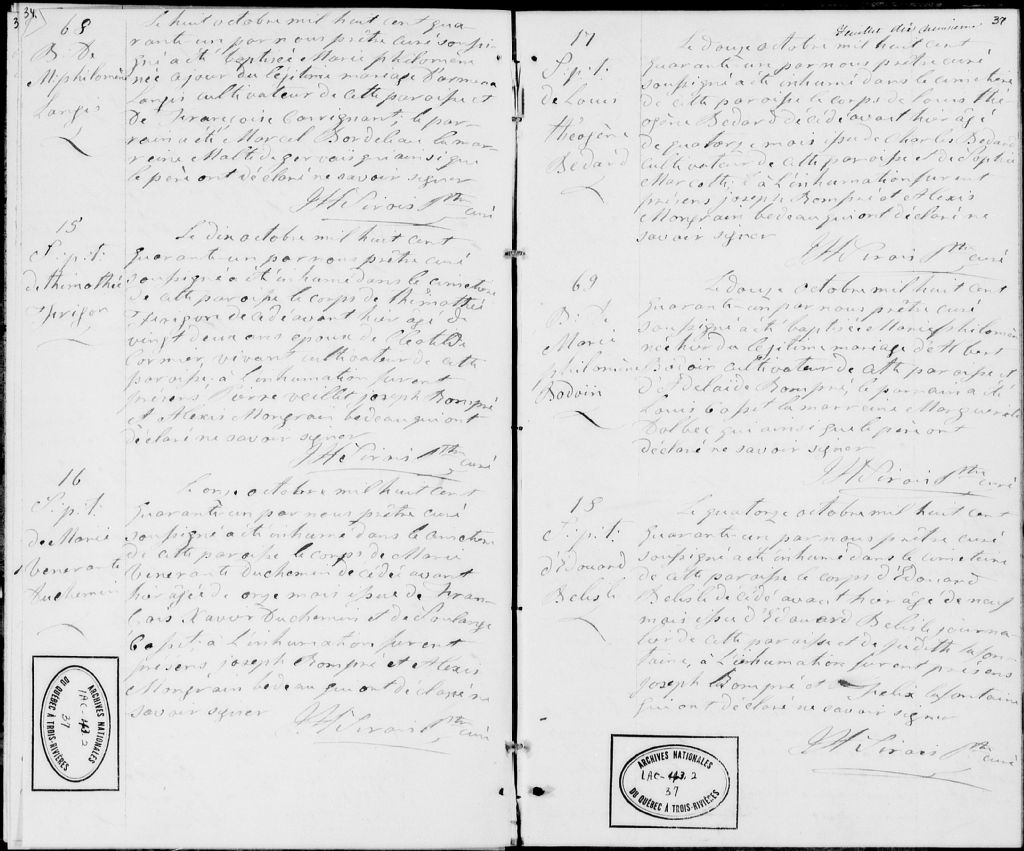 34.
3
68
B. De
M. philomène
Largis
Le huit octobre mil huit cent qua-
rante un par nous prêtre curé soussi-
gné a été baptisée Marie philomène
née a jour du légitime mariage
Largis cultivateur de cette paroisse et
De françoise le par-
rain a été Marcel Bordeleau la mar-
reine Malthide gervais qui ainsi que
le père ont déclaré ne savoir signer
Sirois Ptre curé
15
S. p. t.
de thimothée
frigon
Le dix octobre mil huit cent
quarante un par nous prêtre curé
soussigné a été inhumé dans le cimetiere
de cette paroisse le corps de thimothée
frigon décédé avant hier agé de
vingt deux ans epoux de Cleotilde
Cormier, vivant cultivateur de cette
paroisse, à l'inhumation furent
présens Pierre veillet joseph Bompré
et Alexis Mongrain bedeau qui ont
déclaré ne savoir signer
Sirois Ptre curé
16
S. p. t.
de Marie
venerante
Duchemin
Le onze octobre mil huit cent
quarante un par nous prêtre curé
soussigné a été inhumé dans le cimetiere
de cette paroisse le corps de Marie
venerante Duchemin décédée avant
hier agée de onze mois issue de Fran-
çois Xavier Duchemin et de Solange
à l'inhumation furent
présens joseph Bompré et Alexis
Mongrain bedeau qui ont déclaré ne
savoir signer
Sirois Ptre curé
ARCHIVES NATIONALES
IAC-443.2
37
DU QUÉBEC À TROIS-RIVIÈRES
37
feuillet dix neuvième
17
S. p. t.
de Louis
théogène
Bédard
Le douze octobre mil huit cent
quarante un par nous prêtre curé
soussigné a été inhumé dans le cimetiere
de cette paroisse le corps de Louis thé-
ogène Bédard décédé avant hier agé
de quatorze mois issu de Charles Bédard
cultivateur de cette paroisse et de Sophie
Marcotte, à L'inhumation furent
présens joseph Bompré et Alexis
Mongrain bedeau qui ont déclaré ne
savoir signer
Sirois Ptre curé
69
B. De
Marie
philomène
Bodoin
Le douze octobre mil huit cent
quarante-un par nous prêtre curé
soussigné a été baptisée Marie philomène
née hier du légitime mariage d'Albert
Bodoin cultivateur de cette paroisse et
d'Adelaïde Bompré, le parrain a été
Louis et la marreine Marguerite
Dolbec qui ainsi que le père ont
déclaré ne savoir signer
Sirois Ptre curé
18
S. p. t.
d'Édouard
Belisle
Le quatorze octobre mil huit cent
quarante-un par nous prêtre curé
soussigné a été inhumé dans le cimetiere
de cette paroisse le corps d'Édouard
Belisle décédé avant hier âgé de neuf
mois issu d'Édouard Belisle journa-
lier de cette paroisse et de Judith lafon-
taine, à L'inhumation furent présens
joseph Bompré et Félix lafontaine
qui ont déclaré ne savoir signer
Sirois Ptre curé
ARCHIVES NATIONALES
IAC-443.2
37
DU QUÉBEC À TROIS-RIVIÈRES